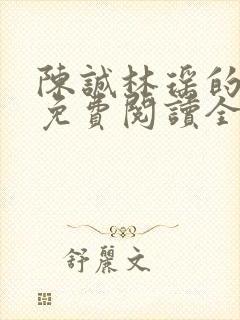 陳誠林瑤的
免費閱讀全
舒麗文